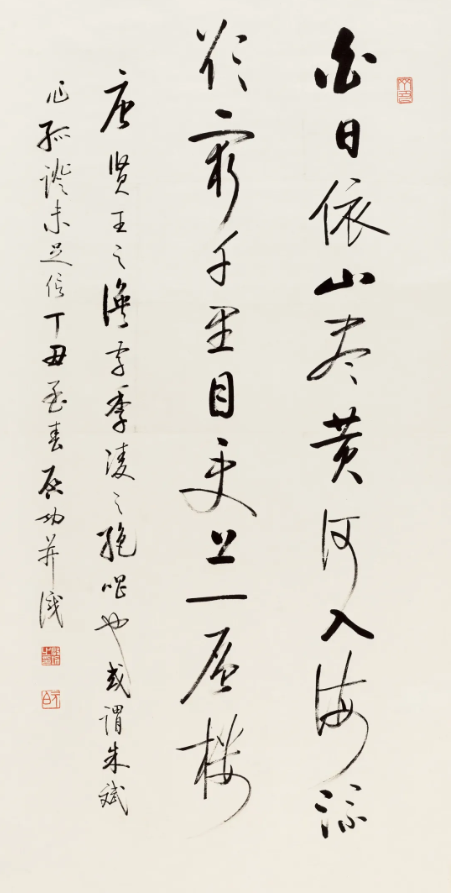 白日依山尽黄河入海流
欲穷千里目更上一层楼
唐贤王之涣字季凌之绝唱也或谓朱斌
作孤证未足信丁丑孟春启功并识